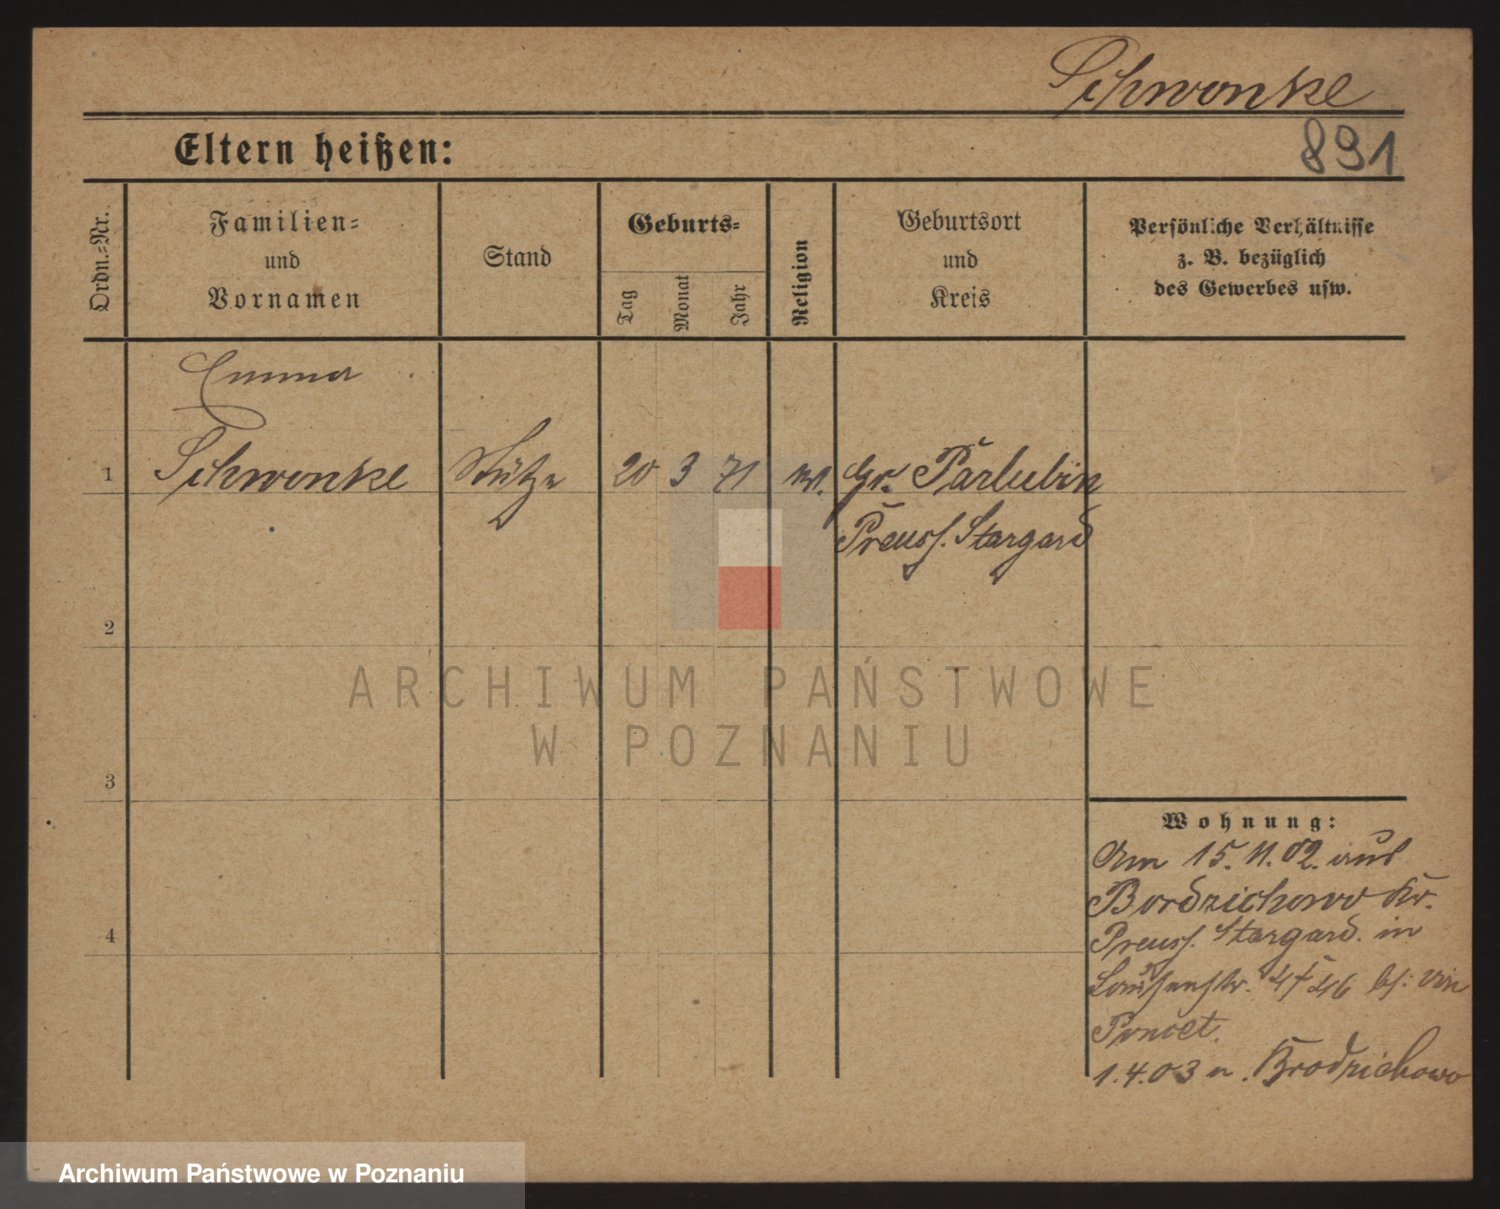 Schwonke
Eltern heißen:
891
Ordn.-Nr.
Familien-
und
Vornamen
Stand
Geburts-
Tag
Monat
Jahr
Religion
Geburtsort
und
Kreis
Persönliche Verhältnisse
z. B. bezüglich
des Gewerbes usw.
Emma
1 Schwonke Stütze 20 3 71 Gr. Parlubin
Preuss. Stargard
2
3
4
Wohnung:
Am 15.11.02. aus
Bordzichowo Kr.
Preuss. Stargard. in
Louisenstr. bei von
Poncet.
1.4.03 n. Brodzichowo
ARCHIWUM PAŃSTWOWE
W POZNANIU
Archiwum Państwowe w Poznaniu